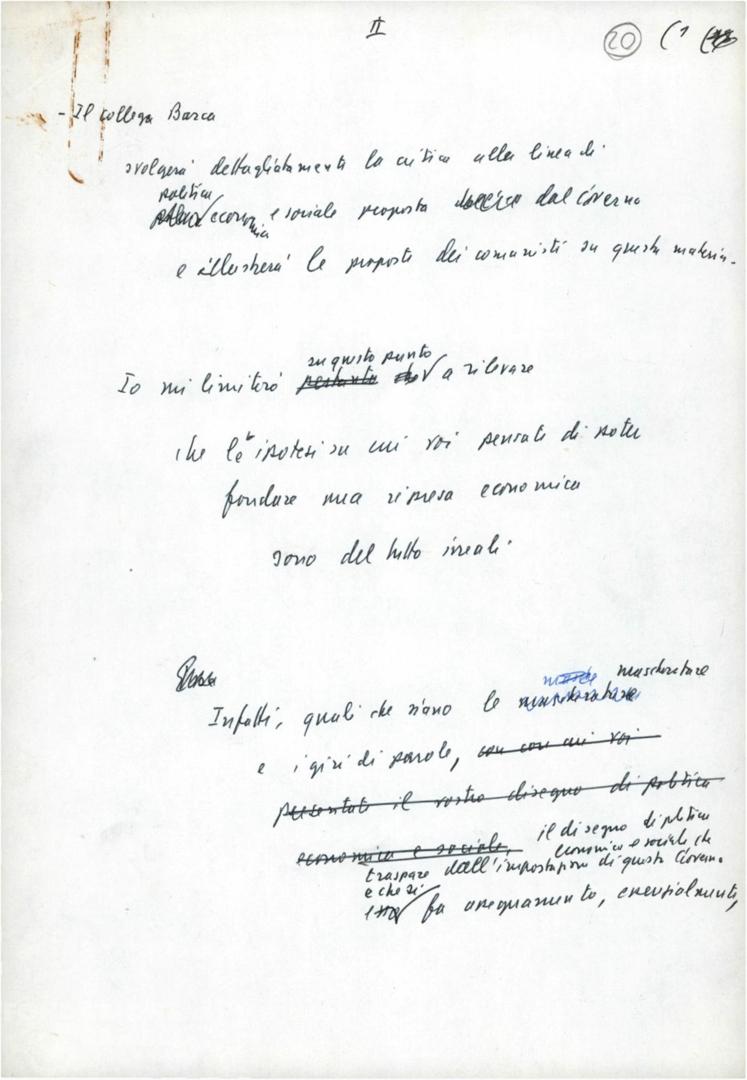 II
20 (1
- Il collega Barca
svolgerà dettagliatamente la critica alla linea di
politica
economica e sociale proposta dal Governo
e illustrerà le proposte dei comunisti su questa materia.
su questo punto
Io mi limiterò pertanto a rilevare
che le ipotesi su cui voi pensate di poter
fondare una ripresa economica
sono del tutto irreali.
mascherature
Infatti, quali che siano le mascherature
e i giri di parole, con cui voi
presentate il vostro disegno di politica
economica e sociale, il disegno di politica
economica e sociale che
traspare dall'impostazione di questo Governo
e che si
fa assegnamento, essenzialmente,